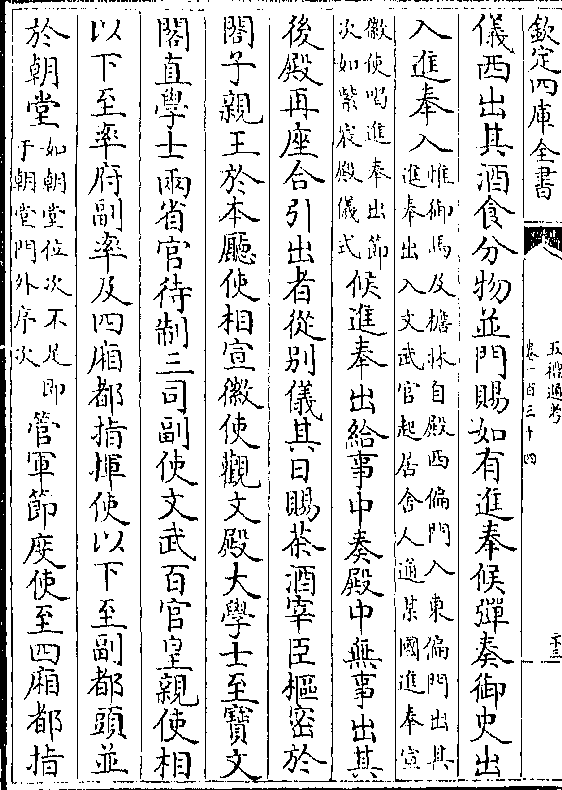 欽定四庫全書
五禮通考
卷一百三十四
二十三
儀西出其酒食分物並門賜如有進奉候彈奏御史出
入進奉入惟御馬及檐牀自殿西偏門入東偏門出其
進奉出入文武官起居舍人通某國進奉宣
徽使喝進奉出節
次如紫宸殿儀式候進奉出給事中奏殿中無事出其
後殿再座合引出者從别儀其日賜茶酒宰臣樞密於
閤子親王於本廳使相宣徽使觀文殿大學士至寶文
閣直學士兩省官待制三司副使文武百官皇親使相
以下至率府副率及四廂都指揮使以下至副都頭並
於朝堂如朝堂位次不足即
于朝堂門外序次管軍節度使至四廂都指